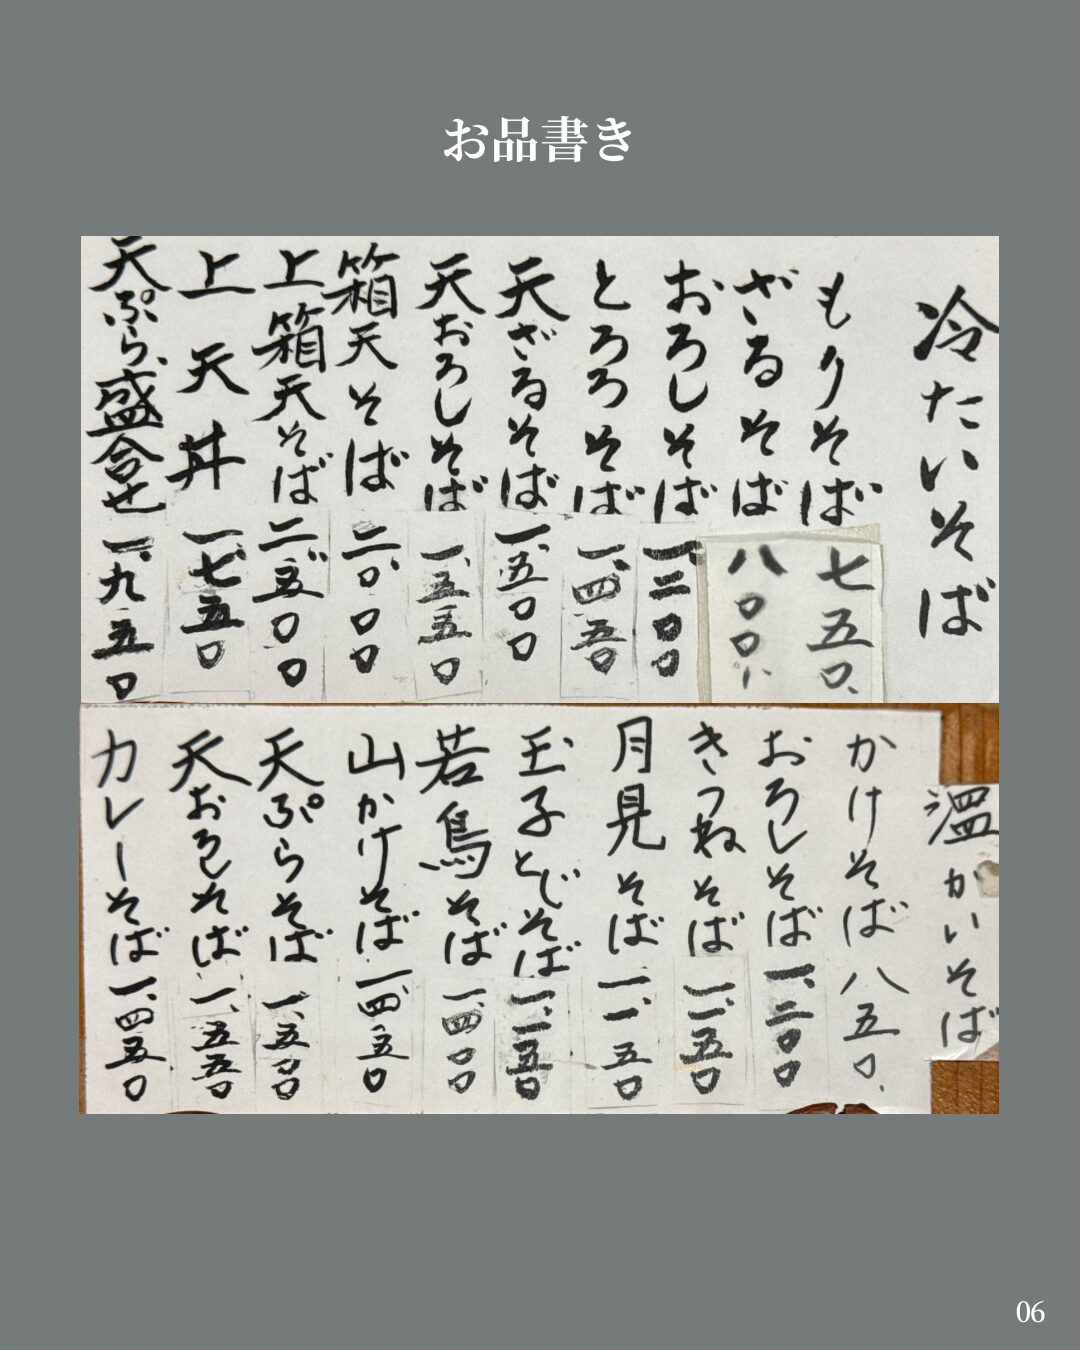 お品書き
冷たいそば
もりそば 七五〇、
ざるそば 八〇〇、
おろしそば 一、二〇〇
とろろそば 一、四五〇
天ざるそば 一、五〇〇
天おろしそば 一、五五〇
箱天そば 二、〇〇〇
上箱天そば 二、五〇〇
上天丼 一、七五〇
天ぷら盛合せ 一、九五〇
温かいそば
かけそば 八五〇、
おろしそば 一、二〇〇
きつねそば 一、一五〇
月見そば 一、一五〇
玉子とじそば 一、一五〇
若鳥そば 一、四〇〇
山かけそば 一、四五〇
天ぷらそば 一、五〇〇
天おろしそば 一、五五〇
カレーそば 一、四五〇
06